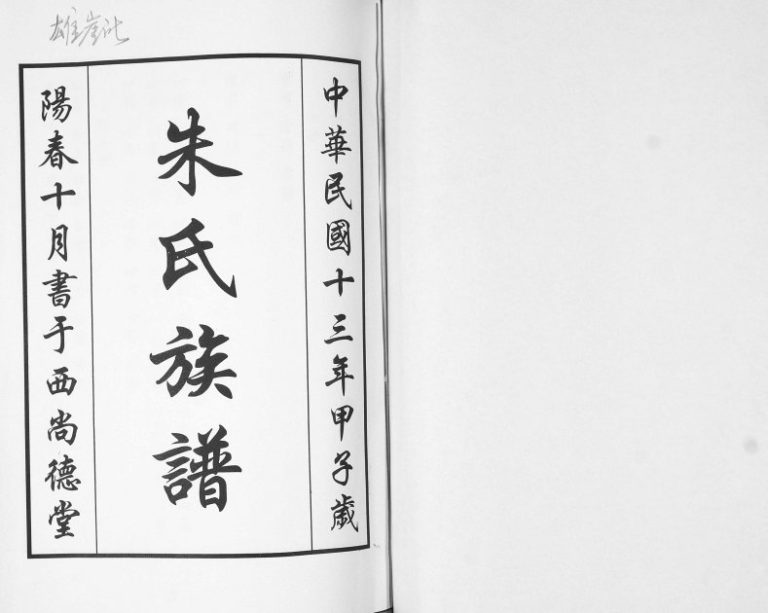 雄崖北
中華民國十三年甲子歲
朱氏族譜
陽春十月書于西尚德堂